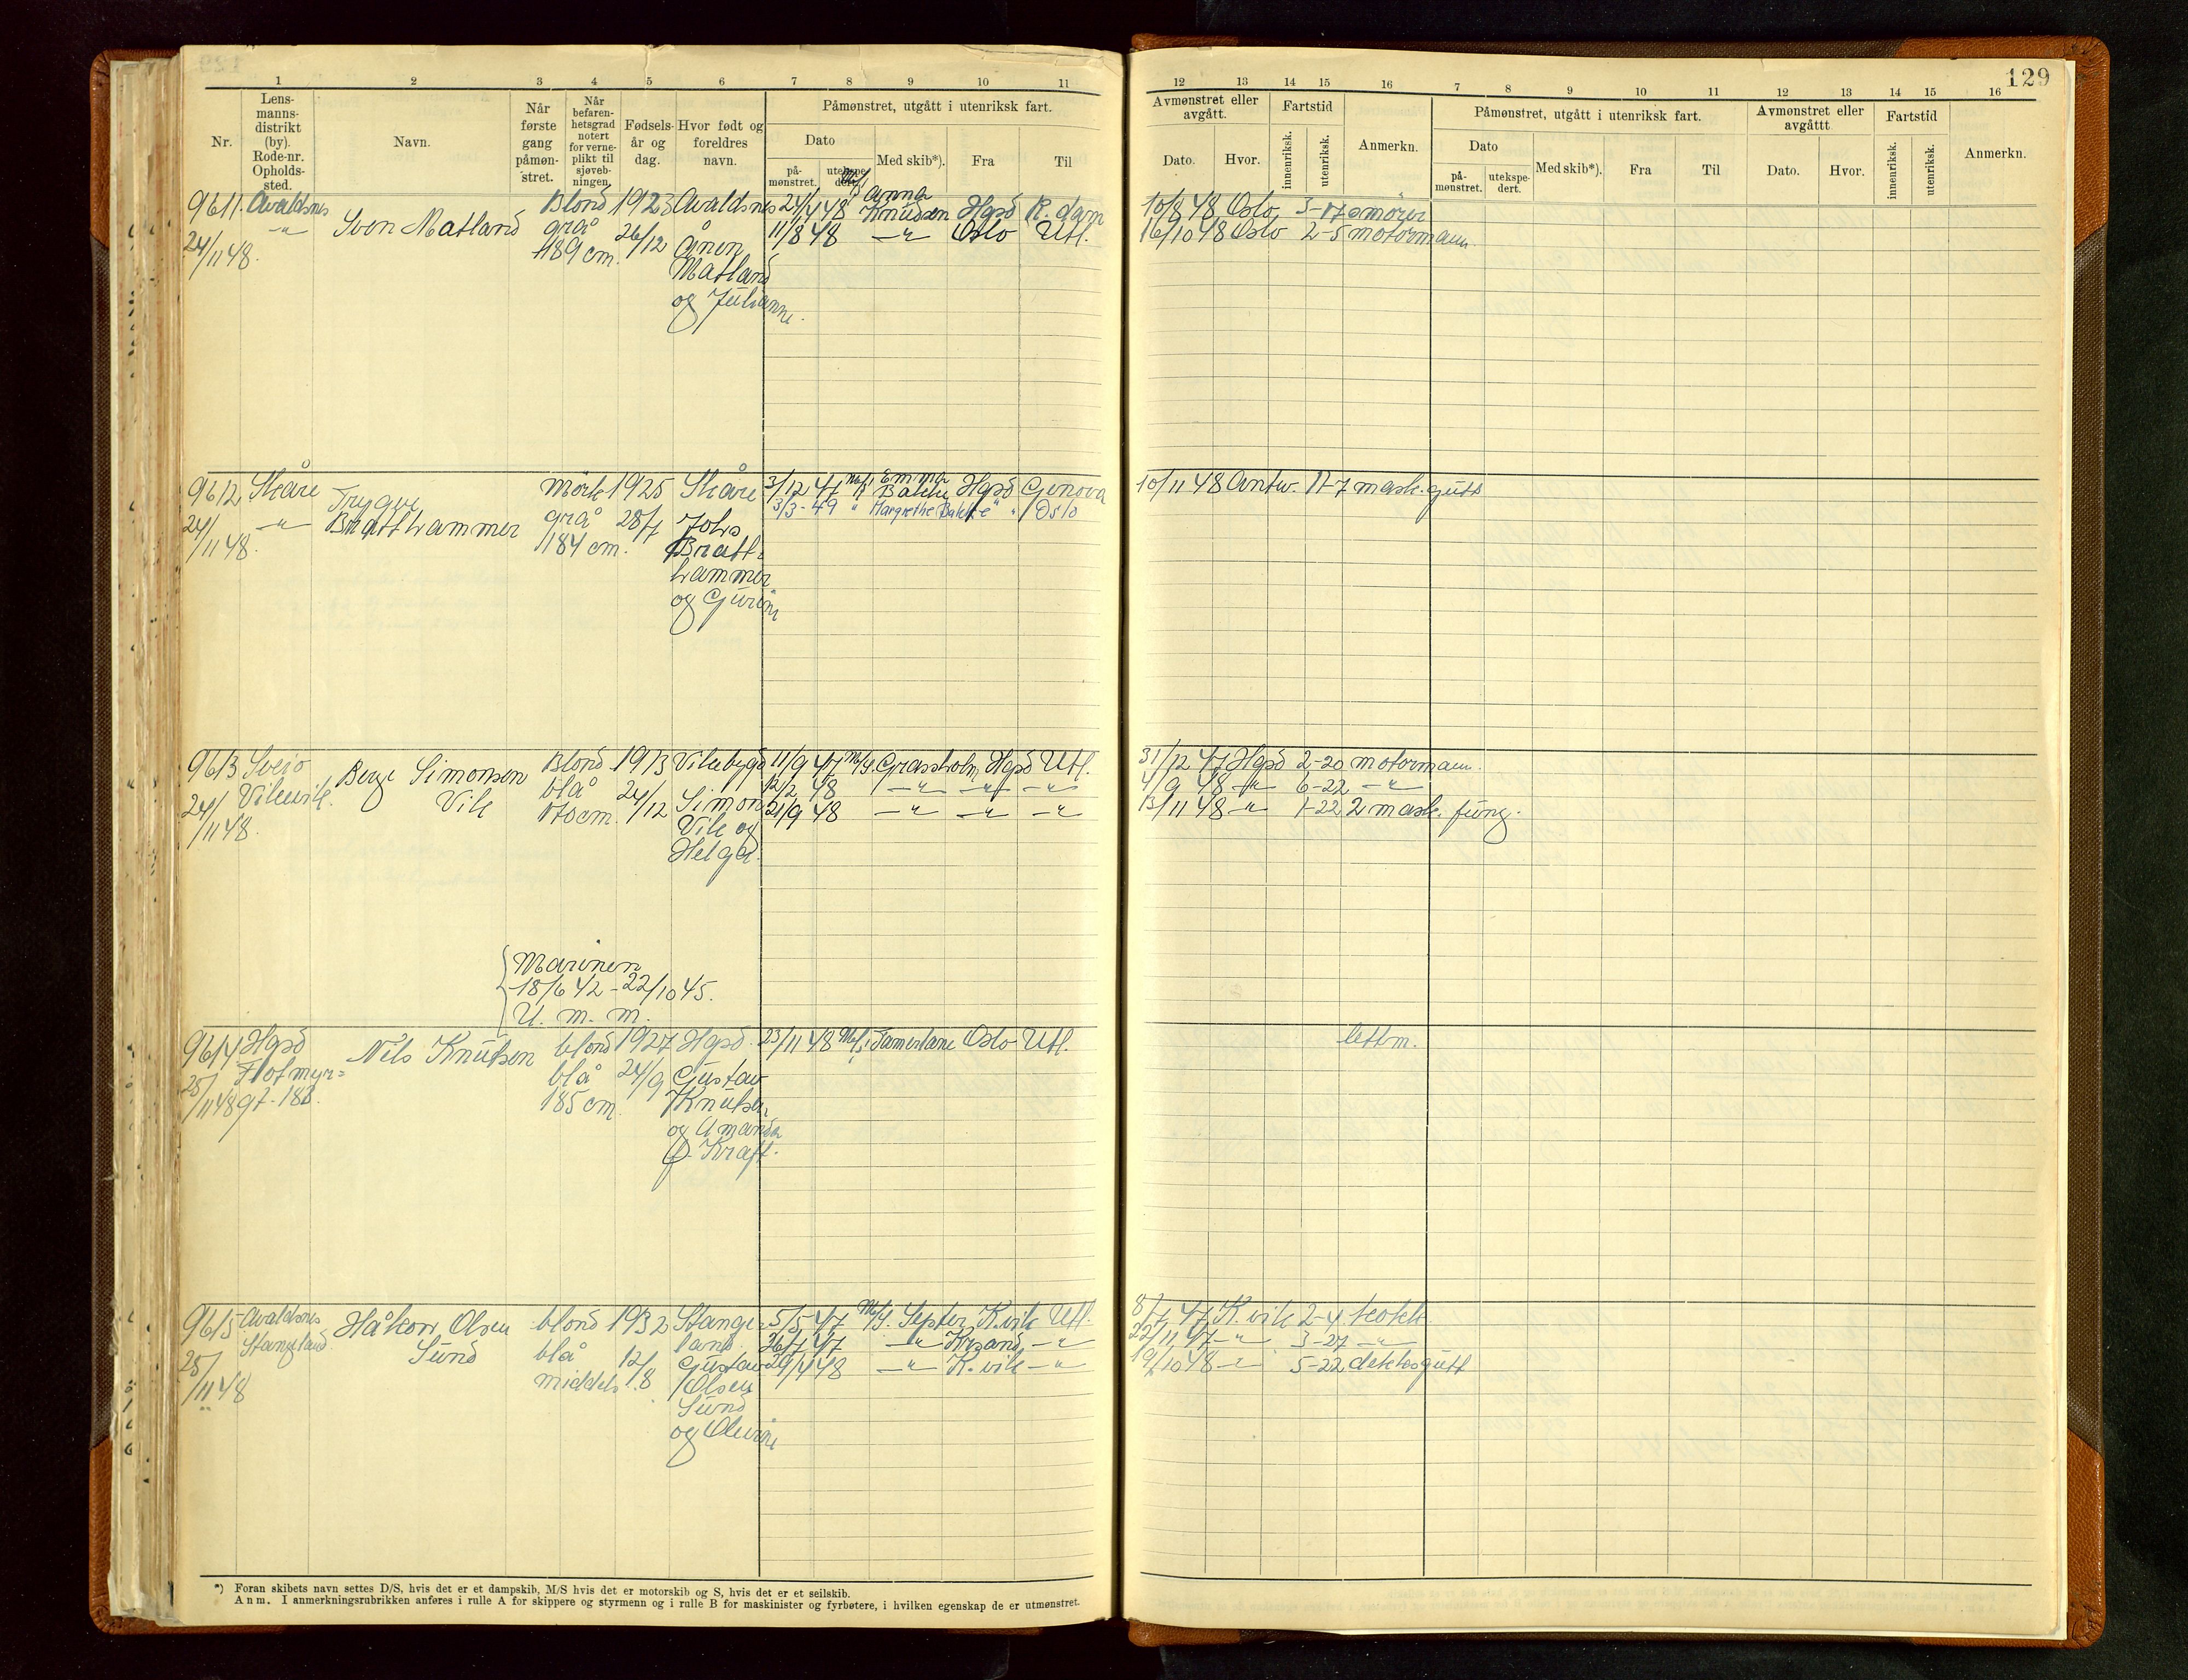 129
1 2 3 4 5 6 7 8 9 10 11
Nr.
Lens-
manns-
distrikt
(by).
Rode-nr.
Opholds-
sted.
Navn.
Når
første
gang
påmøn-
stret.
Når
befaren-
hetsgrad
notert
for verne-
plikt til
sjøveb-
ningen.
Fødsels-
år og
dag.
Hvor født og
foreldres
navn.
Påmønstret, utgått i utenriksk fart.
Dato
på-
mønstret.
utekspe-
dert.
Med skib*).
Fra
Til
9611. Avaldsnes Blond 1923 Avaldsnes 24/4 48 M/S Anna Knudsen Hgsd R.dam
24/11 48. -"- Sven Matland grå 26/12 Ånen 11/8 48 -"- Oslo Utl.
189 cm. Matland
og Julianne.
9612 Skåre Trygve mörk 1925 Skåre 3/12 47 M/S Emma Bakke Hgsd Genova
24/11 48. -"- Bratthammer grå 28/7 Johs 3/3-49 " Margrethe Bakke " Oslo
184 cm. Bratt-
hammer
og Gurine
9613 Sveio Berge Simonsen Blond 1913 Vikebygd 11/9 47 M/S. Grassholm Hgsd Utl.
24/11 48. Vikevik. Vik blå 24/12 Simon 12/2 48 -"- -"- -"-
170 cm. Vik og 21/9 48 -"- -"- -"-
Helga.
Marinen
18/6 42 - 22/10 45.
U. m. m.
9614 Hgsd Nils Knutsen blond 1927 Hgsd. 23/11 48 M/S Tamerlane Oslo Utl.
25/11 48 Flotmyr= blå 24/9 Gustav
gt. 183. 185 cm. Knutsen
og Amanda
f. Kraft.
9615 Avaldsnes Håkon Olsen blond 1932 Stange- 5/5 47 M/S. Septer K.vik Utl.
Stangeland. Sund blå 12/8 land. 26/7 47 -"- Krsand, -"-
25/11 48 middels Gustav 29/4 48 -"- K.vik -"-
Olsen
Sund
og Olevine
*) Foran skibets navn settes D/S, hvis det er et dampskib, M/S hvis det er motorskib og S, hvis det er et seilskib.
Anm. I anmerkningsrubrikken anføres i rulle A for skippere og styrmenn og i rulle B for maskinister og fyrbøtere, i hvilken egenskap de er utmønstret.
12 13 14 15 16 7 8 9 10 11 12 13 14 15 16
Avmønstret eller
avgått.
Dato.
Hvor.
Fartstid
innenriksk.
utenriksk.
Anmerkn.
Påmønstret, utgått i utenriksk fart.
Dato
på-
mønstret.
utekspe-
dert.
Med skib*).
Fra
Til
Avmønstret eller
avgåttt
Dato.
Hvor.
Fartstid
innenriksk.
utenriksk.
Anmerkn.
10/8 48 Oslo 3-17 smörer
16/10 48 Oslo 2-5 motormann.
10/11 48 Antw. 11-7 mask.gutt
31/12 47 Hgsd 2-20 motormann.
4/9 48 -"- 6-22 -"-
13/11 48 -"- 1-22 2 mask. fung.
lettm.
8/7 47 K.vik 2-4 kokk.
22/11 47 -"- 3-27 -"-
19/10 48 -"- 5-22 dekksgutt